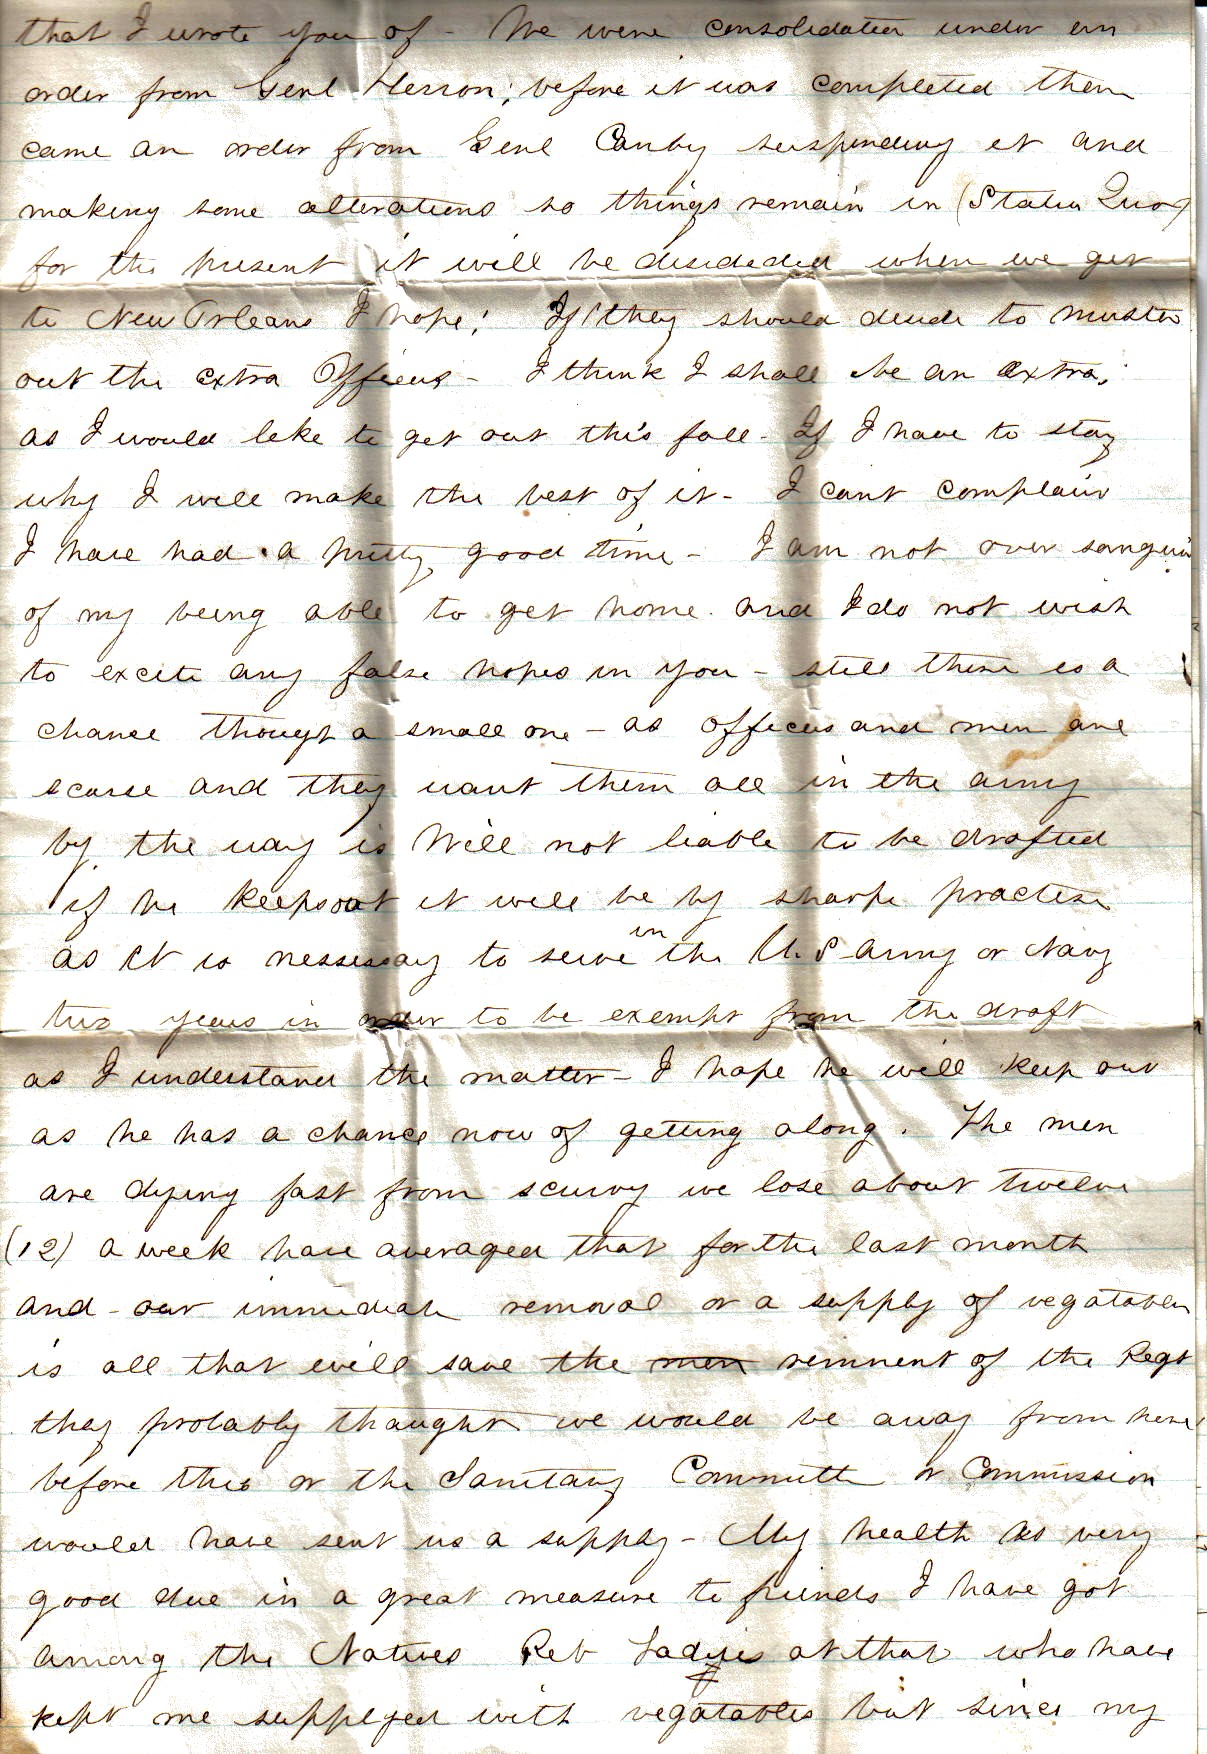 that I wrote you of - We were consolidated under an
order from Genl Herron; before it was completed there
came an order from Genl Canby suspending it and
making some alterations so things remain in (Status Quo)
for the present it will be desideded when we get
to New Orleans I hope! If they should decide to muster
out the extra Officers - I think I shall be an extra,
as I would like to get out this fall - If I have to stay
why I will make the best of it - I cant complain
I have had a pretty good time - I am not over sanguin
of my being able to get home. and I do not wish
to excite any false hopes in you - still there is a
chance though a small one - as officers and men are
scarse and they want them all in the army
by the way is Will not liable to be drafted
if he keeps out it will be by sharp practise
as it is nessessary to serve in the U.S Army or Navy
two years in order to be exempt from the draft
as I understand the matter - I hope he will keep out
as he has a chance now of getting along. The men
are dying fast from scurvy we lose about twelve
(12) a week have averaged that for the last month
and - our immediate removal or a supply of vegatables
is all that will save the men remnent of the Regt
they probably thaught we would be away from here
before this or the Sanitary Committe or Commission
would have sent us a supply - My health is very
good due in a great measure to friends I have got
among the Natives Reb Ladies at that who have
kept me supplyed with vegatables but since my